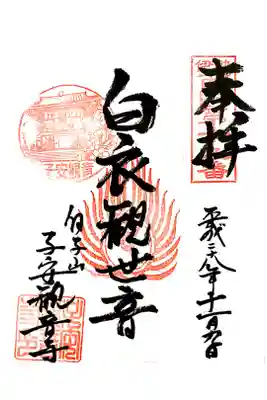 奉拝
平成二八年十一月九日
白衣観世音
白子山
子安観音寺
子安観音